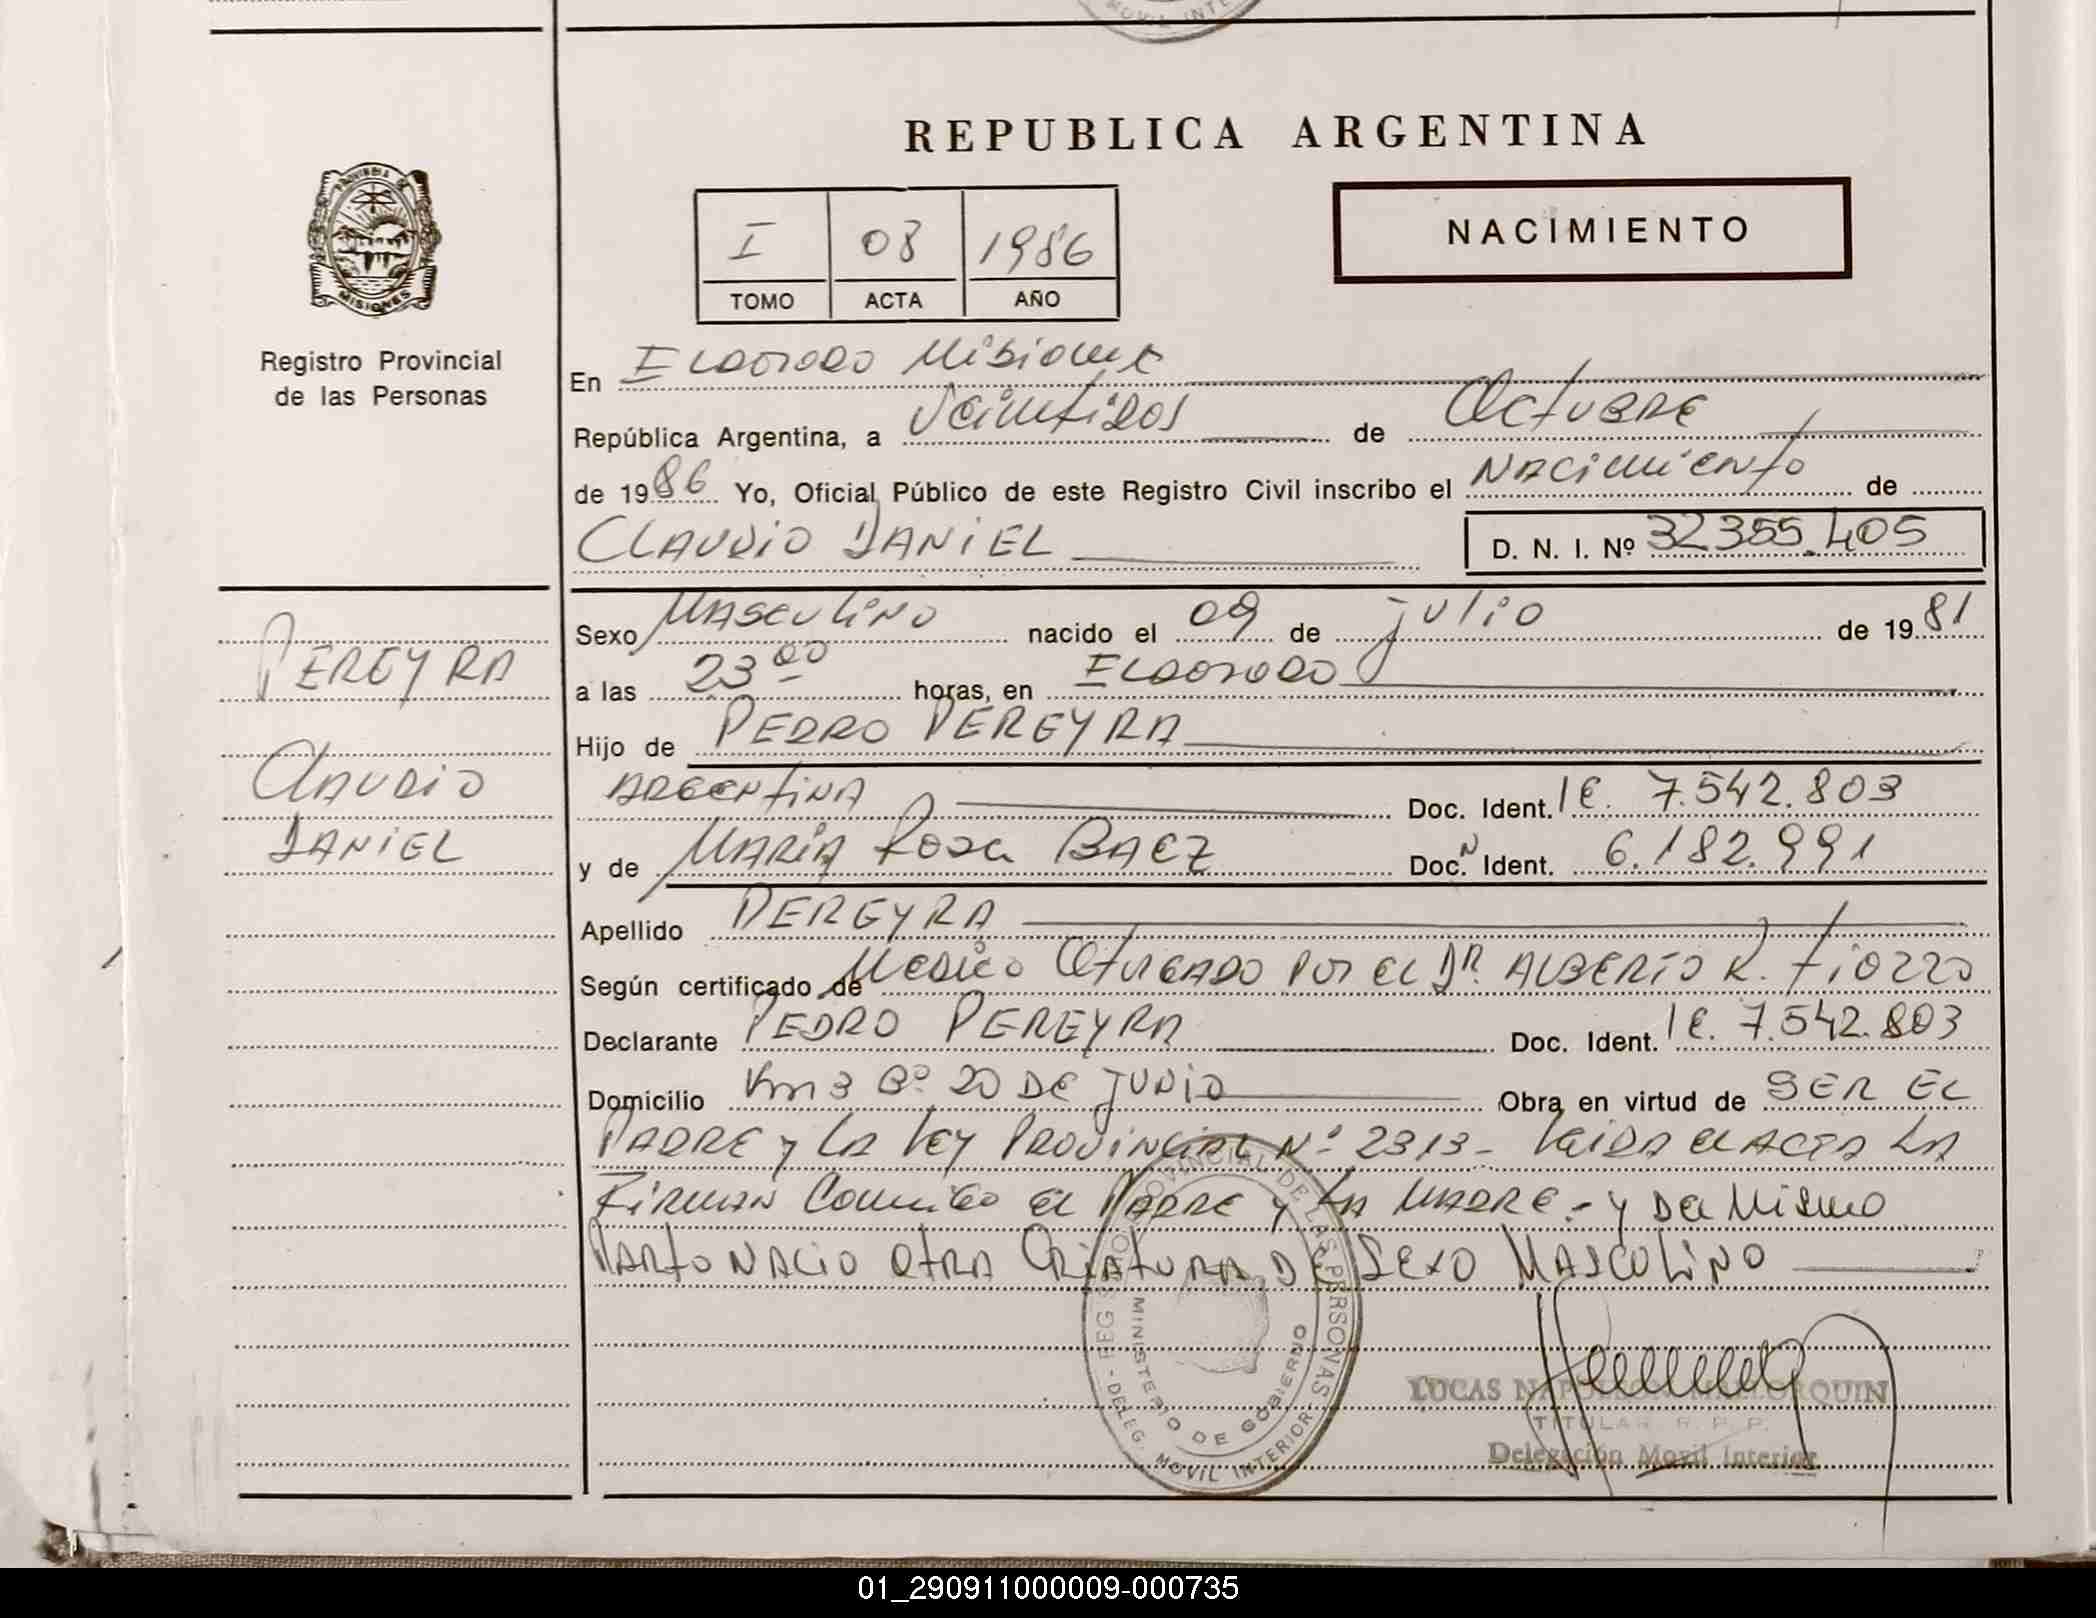 MOVIL INTE
REPUBLICA ARGENTINA
PROVINCIA DE
MISIONES
Registro Provincial
de las Personas
I 08 1986
TOMO ACTA AÑO
NACIMIENTO
En Eldorado Misiones
República Argentina, a Veintidos de Octubre
de 1986 Yo, Oficial Público de este Registro Civil inscribo el Nacimiento de
CLAUDIO DANIEL D. N. I. Nº 32355.405
PEREYRA
CLAUDIO
DANIEL
Sexo Masculino nacido el 09 de julio de 1981
a las 23 00 horas, en Eldorado
Hijo de PEDRO PEREYRA
ARGENTINA Doc. Ident. 7.542.803
y de MARIA Rosa BAEZ Doc. Ident. 6.182.991
Apellido PEREYRA
Según certificado de Medico Otorgado por el Dr. ALBERTO R.
Declarante PEDRO PEREYRA Doc. Ident. 7.542.803
Domicilio Km 3 Bº 20 DE JUNIO Obra en virtud de SER EL
PADRE y LA LEY PROVINCIAL Nº 2313- Leida el ACTA LA
Firman Conmigo el PADRE y LA MADRE.- y Del Mismo
PARTO NACIO OTRA CRIATURA DE SEXO MASCULINO
REG PROVINCIAL DE LAS PERSONAS
MINISTERIO DE GOBIERNO
- DELEG. MOVIL INTERIOR -
LUCAS
TITULAR R. P. P.
Delegación Movil Interior
01_290911000009-000735